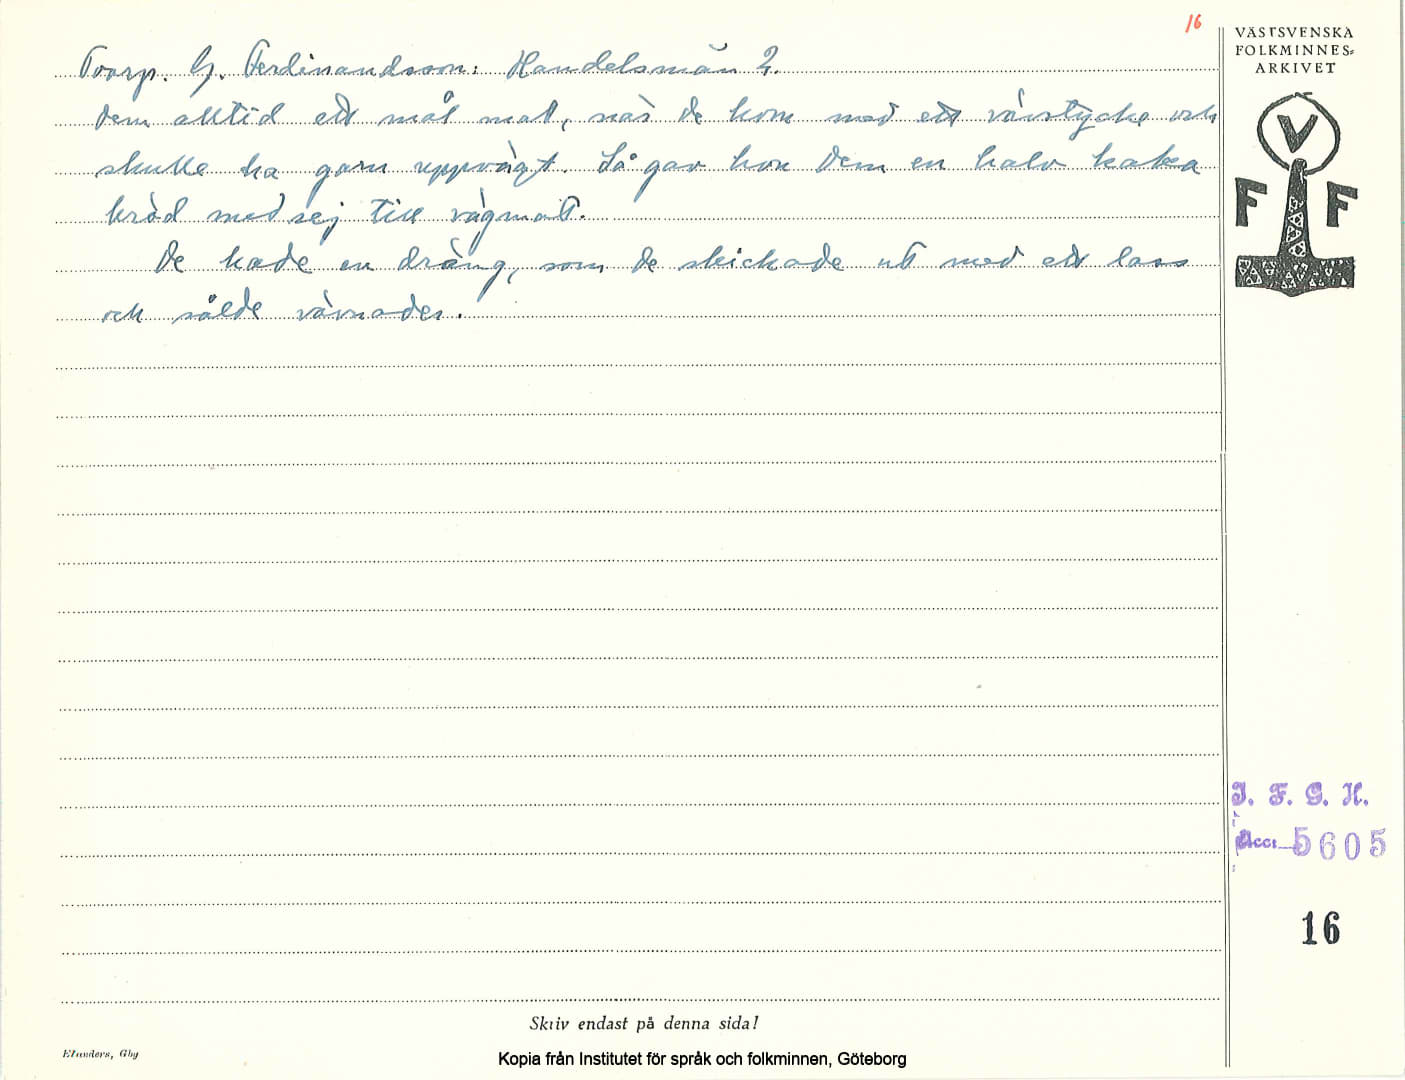 16
Torp. G. Ferdinandsson: Handelsmän 2.
dem alltid ett mål mat, när de kom med ett vävstycke och
skulle ha garn uppvägt. Så gav hon dem en halv kaka
bröd med sej till vägmat.
De hade en dräng, som de skickade ut med ett lass
och sålde vävnader.
VÄSTSVENSKA
FOLKMINNES-
ARKIVET
V
F F
I. F. G. H.
Acc. 5605
16
Skriv endast på denna sida!
Elanders, Gbg
Kopia från Institutet för språk och folkminnen, Göteborg